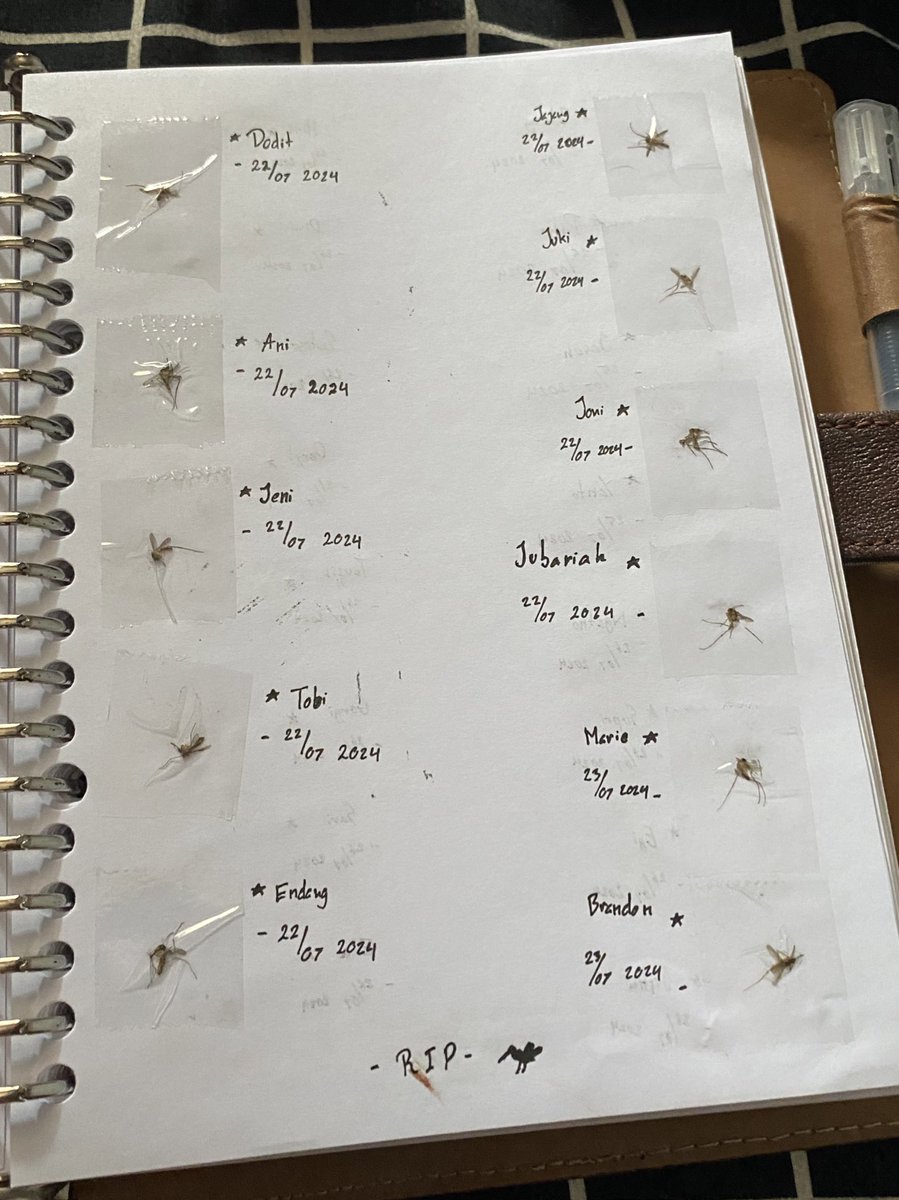 ★ Dodit
- 22/07 2024
★ Ani
- 22/07 2024
★ Jeni
- 22/07 2024
★ Tobi
- 22/07 2024
★ Endang
- 22/07 2024
Jajang ★
22/07 2024 -
Juki ★
22/07 2024 -
Joni ★
22/07 2024 -
Jubariah ★
22/07 2024 -
Marie ★
23/07 2024 -
Brandon ★
23/07 2024 -
- RIP -